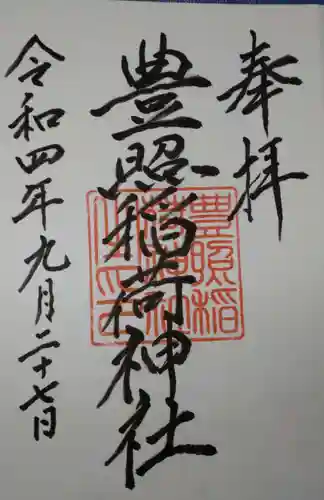 奉拝
豊照稲荷神社
令和四年九月二十七日
豊照稲